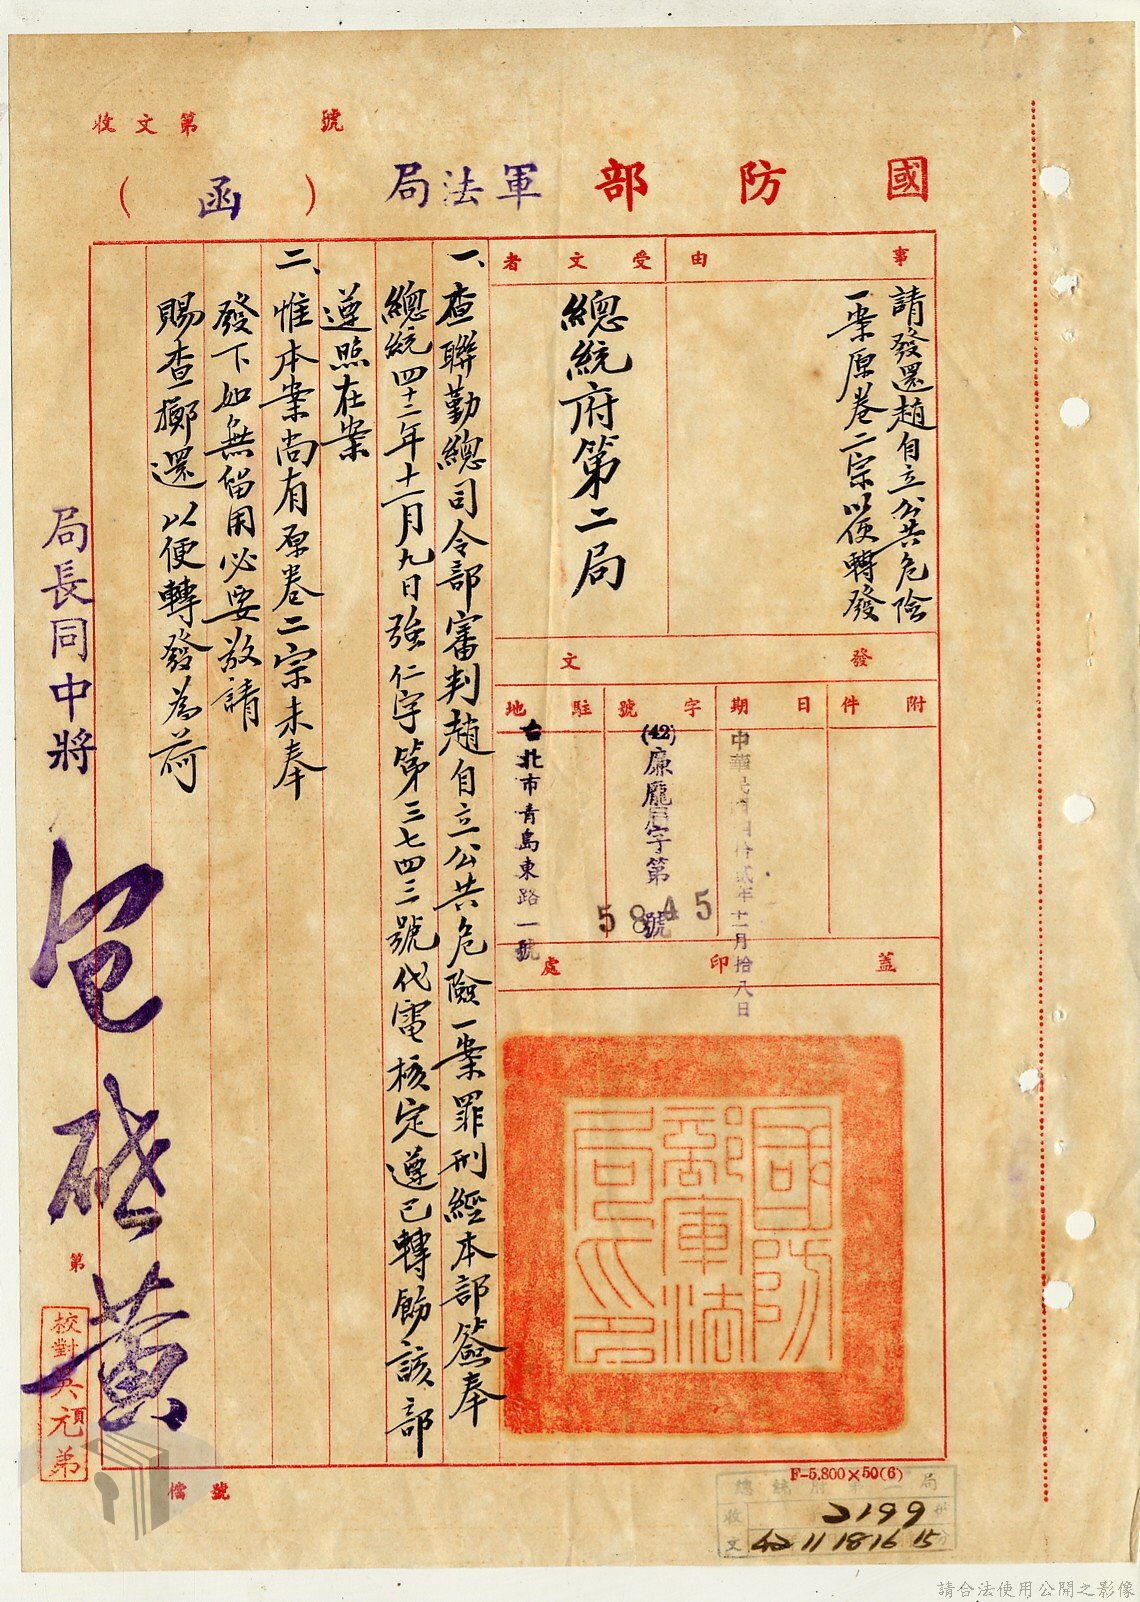 收文第　　號
國防部軍法局（函）
事由
請發還趙自立公共危險
一案原卷二宗以便轉發
受文者
總統府第二局
發文
附件
日期
中華民國四拾貳年十一月拾八日
字號
(42)廉龐字第5845號
駐地
台北市青島東路一號
蓋印處
國防部軍法局印
一、查聯勤總司令部審判趙自立公共危險一案罪刑經本部簽奉
總統四十二年十一月九日強仁字第三七四三號代電核定遵已轉飭該部
遵照在案
二、惟本案尚有原卷二宗未奉
發下如無留用必要敬請
賜查擲還以便轉發為荷
局長同中將 包啟黃
第
校對 吳頑弟
檔號
F-5,800×50(6)
總統府第二局
收文
2199
42 11 18 16 15
請合法使用公開之影像